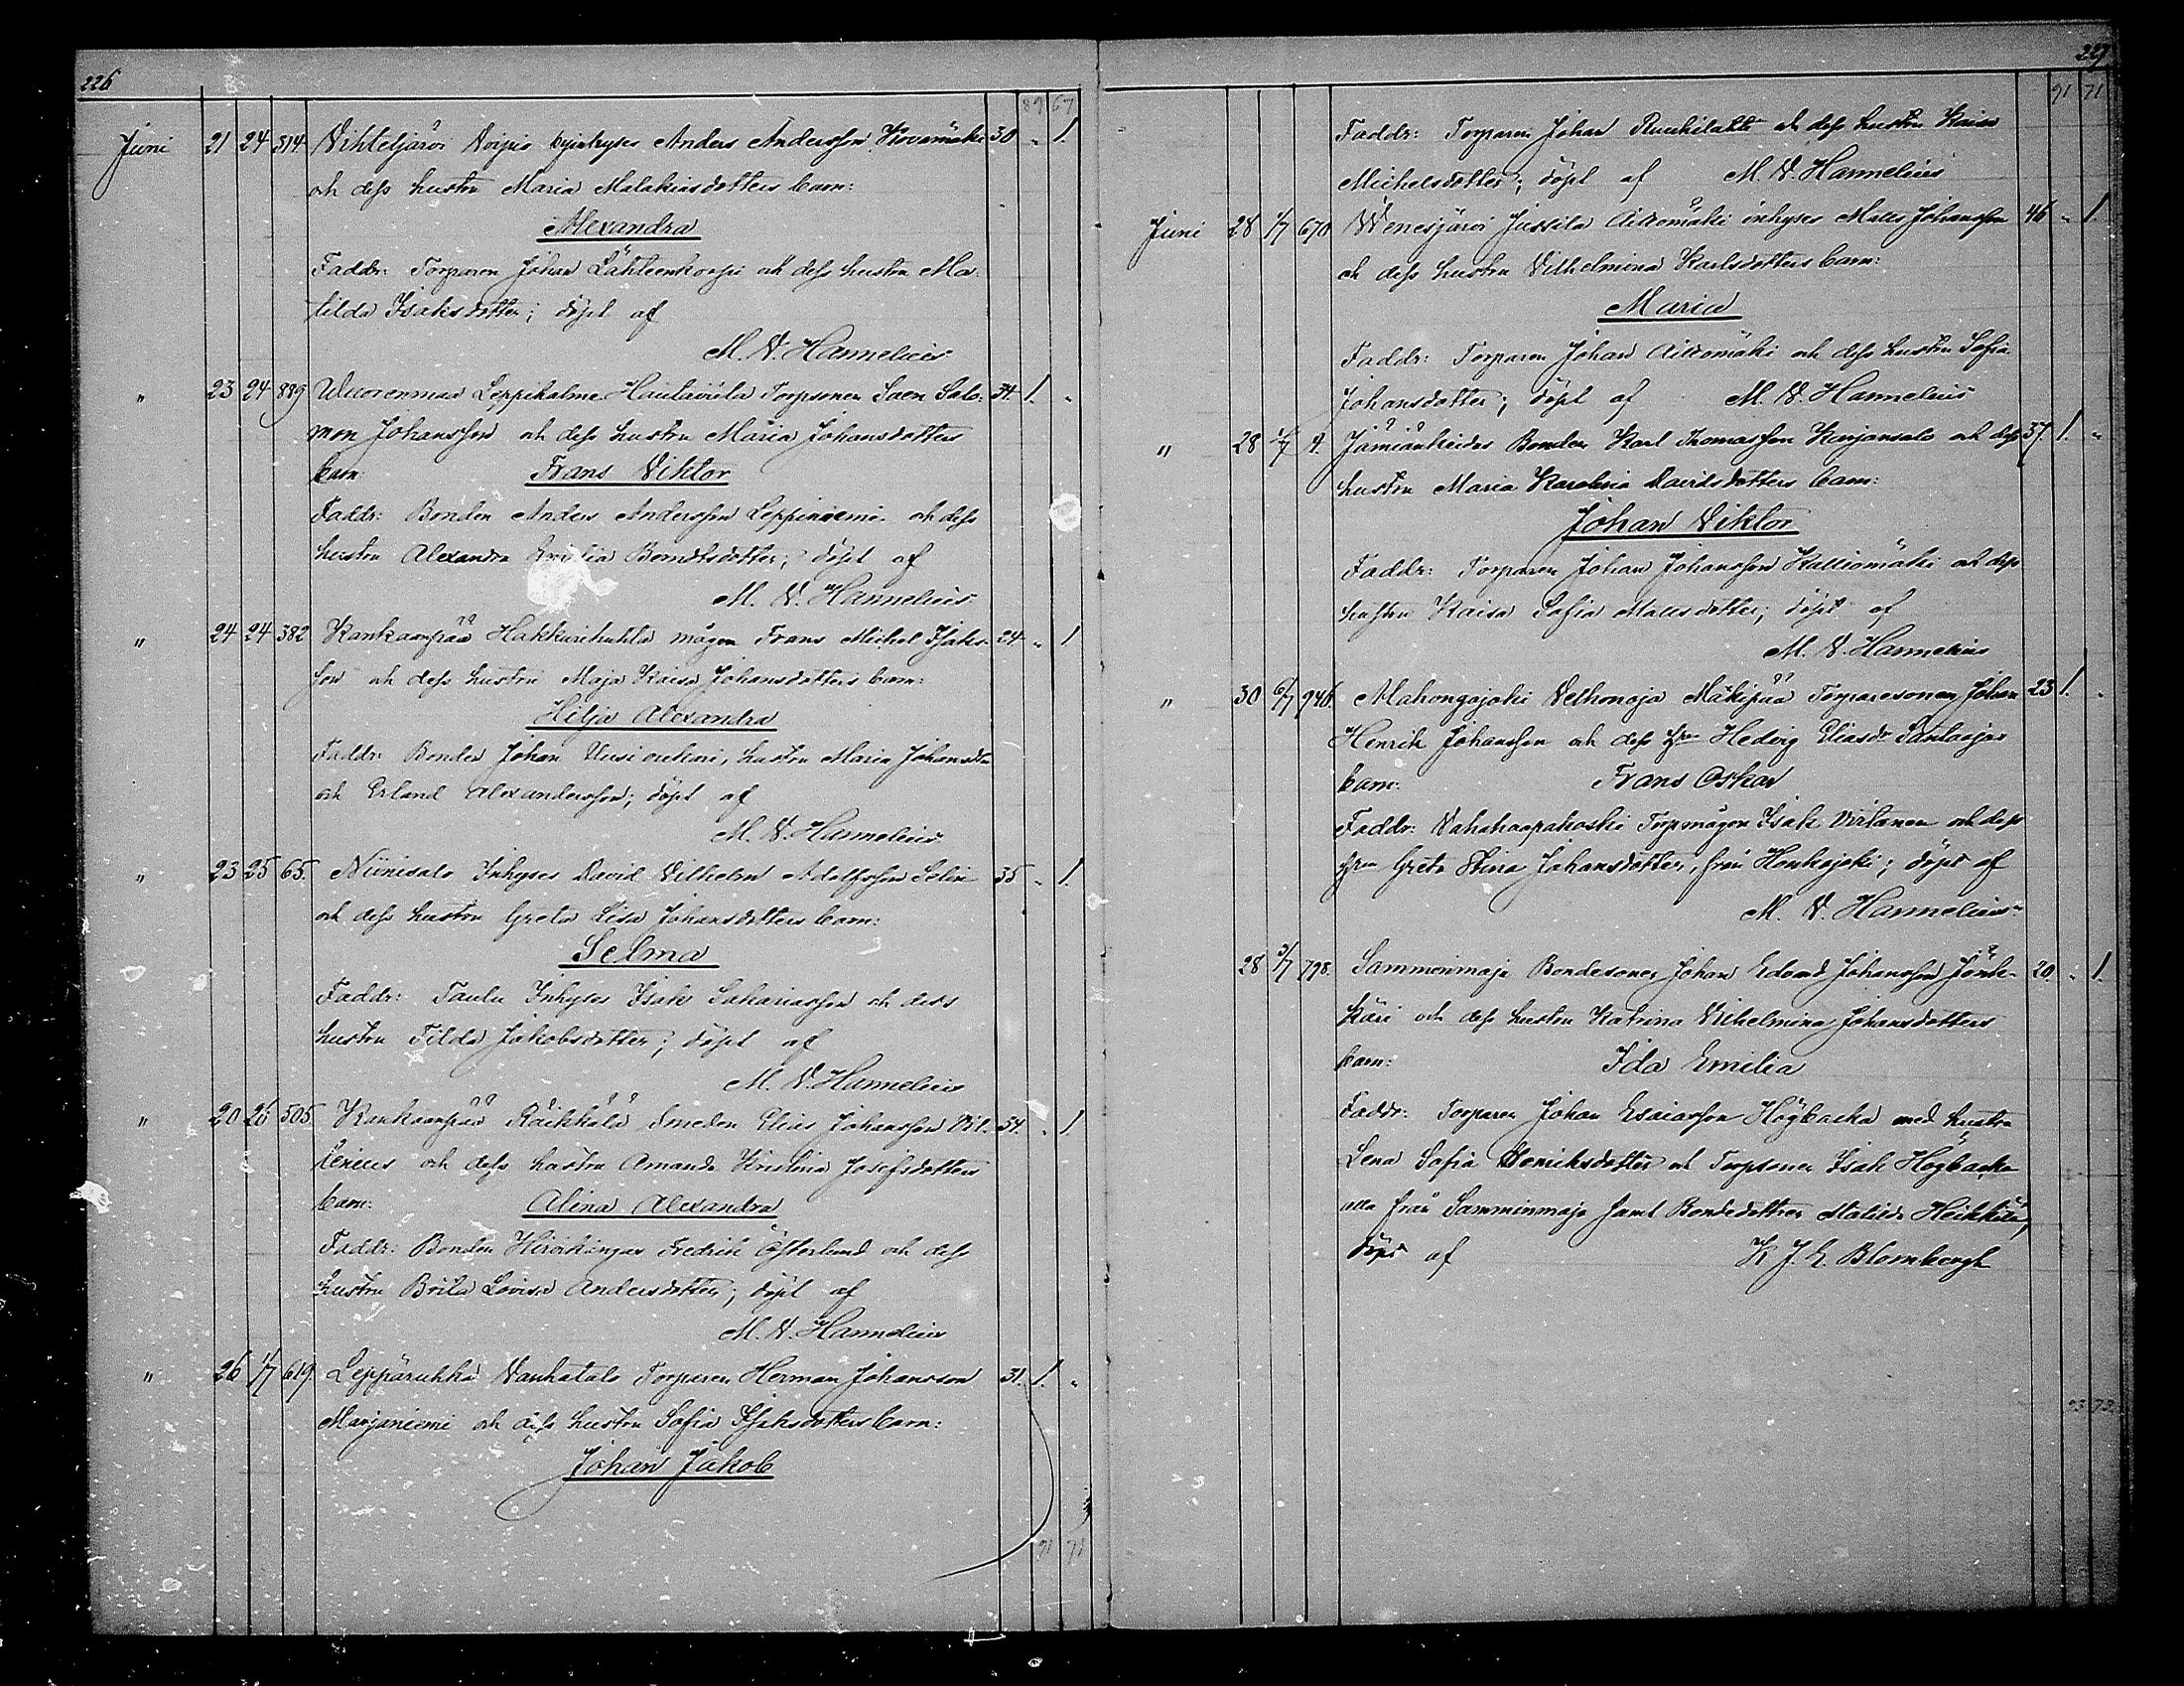 226
89 67
Juni 21 24 314 Vihteljärvi Anders Andersson Kovamäki 30 " 1.
och dess hustru Maria Malakiasdotters barn:
Alexandra
Faddr: Torparen Johan Lähteenkorpi och dess hustru Ma-
tilda Isaksdotter; döpt af
M. V. Hannelius
" 23 24 889 Wuorenmaa Leppihalme Hautaviita Torpsonen Saen Salo- 34. 1. "
mon Johansson och dess hustru Maria Johansdotters
barn Frans Viktor
Faddr: Bonden Anders Andersson Leppiniemi och dess
hustru Alexandra Berndtsdotter; döpt af
M. V. Hannelius
" 24 24 382 Kankaanpää Hakkurihuhta mågen Frans Michel Isaks- 24. " 1
son och dess hustru Maja Kaisa Johansdotters barn:
Hilja Alexandra
Faddr: Bonden Johan hustru Maria Johansdtr
och Erland Alexandersson; döpt af
M. V. Hannelius
" 23 25 65. Niinisalo Inhyses David Vilhelm Adolfsson Selin 35 " 1.
och dess hustru Greta Lisa Johansdotters barn:
Selma
Faddr: Taulu Inhyses Isak Sakariasson och dess
hustru Tilda Jakobsdotter; döpt af
M. V. Hannelius
" 20 26 505. Kankaanpää Räikkälä Smeden Elias Johansson Vil- 34. " 1.
lenius och dess hustru Amanda Kristina Josefsdotters
barn: Alina Alexandra
Faddr: Bonden Hirvikangas Fredrik Österlund och dess
hustru Brita Lovisa Andersdotter; döpt af
M. V. Hannelius
" 26 1/7 619. Leppäruhka Vanhatalo Torparen Herman Johansson 31. 1. "
Marjaniemi och dess hustru Sofia Isaksdotters barn:
Johan Jakob
91 71
227
91 71
Faddr: Torparen Johan Ruuhilahti och dess hustru Kaisa
Michelsdotter; döpt af M. V. Hannelius
Juni 28 1/7 670 Wenesjärvi Jussila Aittomäki inhyses Matts Johansson 46 " 1.
och dess hustru Vilhelmina Karlsdotters barn:
Maria
Faddr: Torparen Johan Aittomäki och dess hustru Sofia
Johansdotter; döpt af M. V. Hannelius
" 28 1/7 4. Jämiänkeidas Bonden Karl Thomasson Karjansalo och dess 37. 1. "
hustru Maria Karolina Davidsdotters barn:
Johan Viktor
Faddr: Torparen Johan Johansson Kalliomäki och dess
hustru Kaisa Sofia Mattsdotter; döpt af
M. V. Hannelius
" 30 6/7 946. Mahongajoki Velhonoja Mäkipää Torparesonen Johan 23 1. "
Henrik Johansson och dess Hru Hedvig Eliasdr Santaojas
barn: Frans Oskar
Faddr: Vahahaapakoski Torpmågen Isak Virtanen och dess
Hru Greta Stina Johansdotter, från Honkajoki; döpt af
M. V. Hannelius
28 3/7 798. Sammenmaja Bondesonen Johan Edvard Johansson 20. " 1.
käri och dess hustru Katrina Vilhelmina Johansdotters
barn: Ida Emilia
Faddr: Torparen Johan Esaiasson Högbacka med hustru
Lena Sofia Henriksdotter och Torpsonen Isak Högbacka
alla från Samminmaja samt Bondedottren Matilda Heikkilä,
döpt af K J. E. Blombergh
93 73